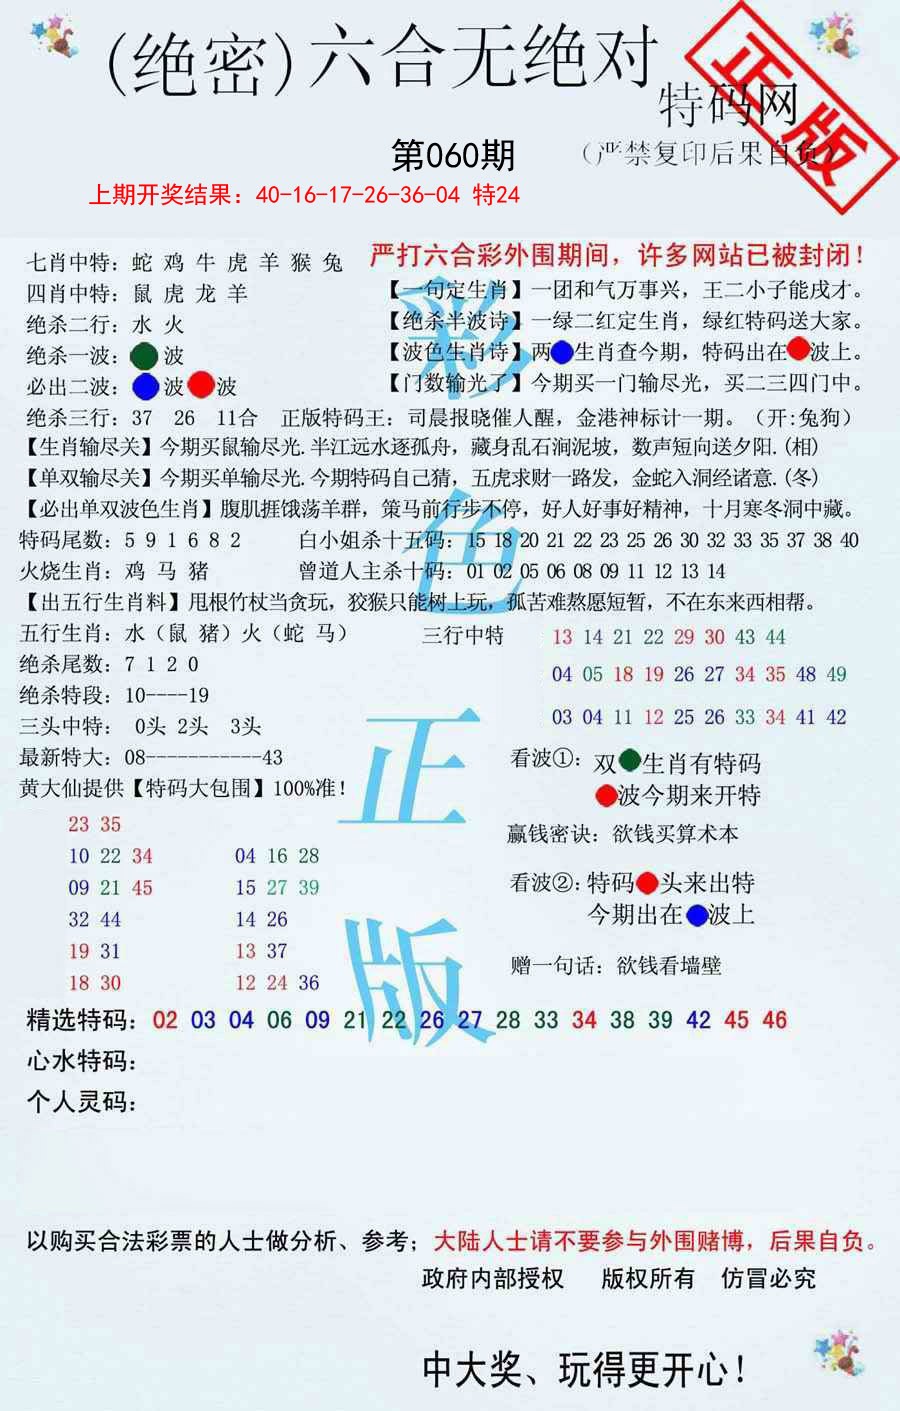 (绝密)六合无绝对
特码网
正版
第060期
（严禁复印后果自负）
上期开奖结果：40-16-17-26-36-04 特24
严打六合彩外围期间，许多网站已被封闭！
七肖中特：蛇 鸡 牛 虎 羊 猴 兔
四肖中特：鼠 虎 龙 羊
【一句定生肖】一团和气万事兴，王二小子能戌才。
绝杀二行：水 火
【绝杀半波诗】一绿二红定生肖，绿红特码送大家。
绝杀一波： 波
【波色生肖诗】两 生肖查今期，特码出在 波上。
必出二波： 波 波
【门数输光了】今期买一门输尽光，买二三四门中。
绝杀三行：37 26 11合 正版特码王：司晨报晓催人醒，金港神标计一期。（开:兔狗）
【生肖输尽关】今期买鼠输尽光.半江远水逐孤舟，藏身乱石涧泥坡，数声短向送夕阳.(相)
【单双输尽关】今期买单输尽光.今期特码自己猜，五虎求财一路发，金蛇入洞经诸意.(冬)
【必出单双波色生肖】腹肌捱饿荡羊群，策马前行步不停，好人好事好精神，十月寒冬洞中藏。
特码尾数：5 9 1 6 8 2 白小姐杀十五码：15 18 20 21 22 23 25 26 30 32 33 35 37 38 40
火烧生肖：鸡 马 猪 曾道人主杀十码：01 02 05 06 08 09 11 12 13 14
【出五行生肖料】甩根竹杖当贪玩，狡猴只能树上玩，孤苦难熬愿短暂，不在东来西相帮。
五行生肖：水（鼠 猪）火（蛇 马）
三行中特
13 14 21 22 29 30 43 44
04 05 18 19 26 27 34 35 48 49
03 04 11 12 25 26 33 34 41 42
绝杀尾数：7 1 2 0
绝杀特段：10----19
三头中特： 0头 2头 3头
最新特大：08-----------43
黄大仙提供【特码大包围】100%准！
看波①：双 生肖有特码
波今期来开特
赢钱密诀：欲钱买算术本
看波②：特码 头来出特
今期出在 波上
赠一句话：欲钱看墙壁
23 35
10 22 34 04 16 28
09 21 45 15 27 39
32 44 14 26
19 31 13 37
18 30 12 24 36
彩色正版
精选特码：02 03 04 06 09 21 22 26 27 28 33 34 38 39 42 45 46
心水特码：
个人灵码：
以购买合法彩票的人士做分析、参考；大陆人士请不要参与外围赌博，后果自负。
政府内部授权 版权所有 仿冒必究
中大奖、玩得更开心！